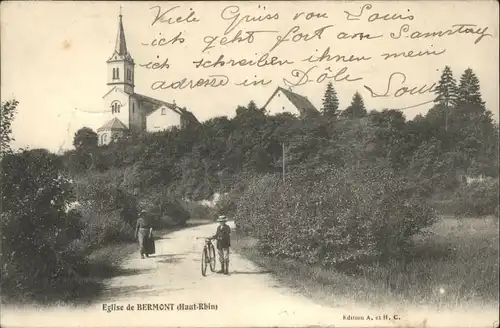 Viele Grüss von Louis
ich geht fort am Samstag
ich schreiben ihnen mein
adresse in Dôle Louis
Eglise de BERMONT (Haut-Rhin)
Edition A. et H. C.